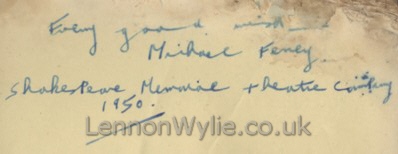 Every good wish
Michael Feney
Shakespeare Memorial Theatre Company
1950.
LennonWylie.co.uk